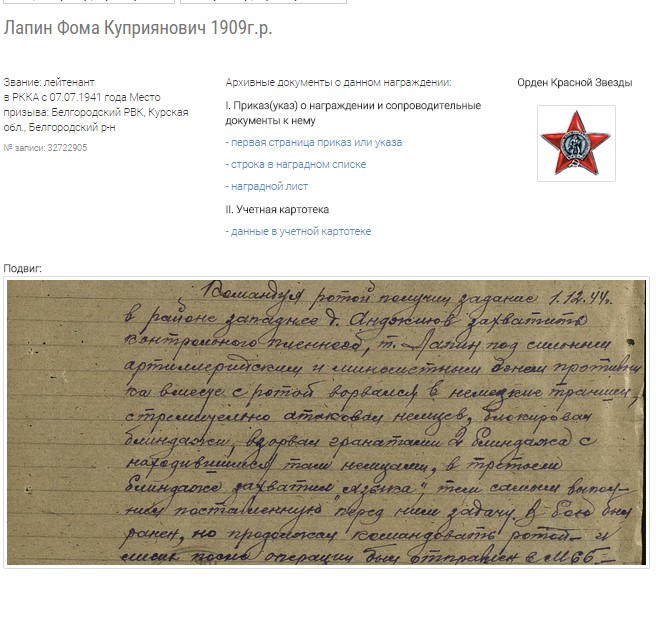 Лапин Фома Куприянович 1909г.р.
Звание: лейтенант
в РККА с 07.07.1941 года Место
призыва: Белгородский РВК, Курская
обл., Белгородский р-н
№ записи: 32722905
Архивные документы о данном награждении:
I. Приказ(указ) о награждении и сопроводительные
документы к нему
- первая страница приказ или указа
- строка в наградном списке
- наградной лист
II. Учетная картотека
- данные в учетной картотеке
Орден Красной Звезды
Подвиг:
Командуя ротой получил задание 1.12.44г.
в районе западнее д. захватить
контрольного пленного, т. Лапин под сильным
артиллерийским и минометным огнем противни
ка вместе с ротой ворвался в немецкие траншеи,
стремительно атаковал немцев, блокировал
блиндажи, взорвал гранатами 2 блиндажа с
находившимися там немцами, в третьем
блиндаже захватил "языка", тем самым выпол-
нил поставленную перед ним задачу. В бою был
ранен, но продолжал командовать ротой и
после операции был отправлен в МСБ-